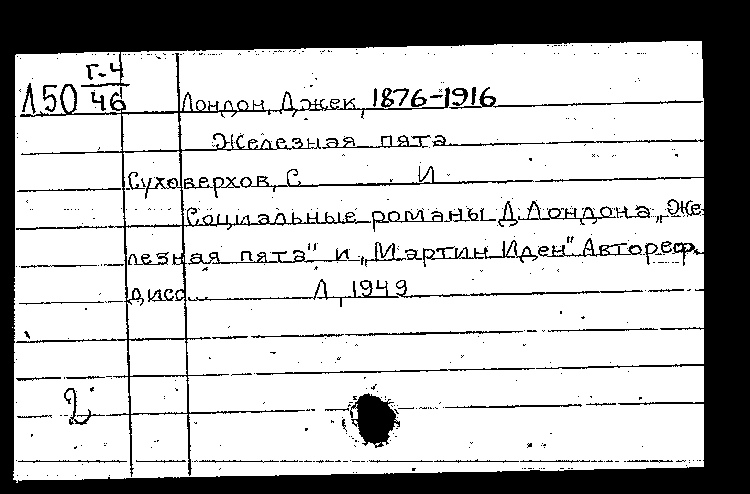 Г-4
Л50 46 Лондон, Джек, 1876-1916
Железная пята
Суховерхов, С И
Социальные романы Д. Лондона „Же-
лезная пята" и „Мартин Иден" Автореф.
дисс... Л, 1949
2